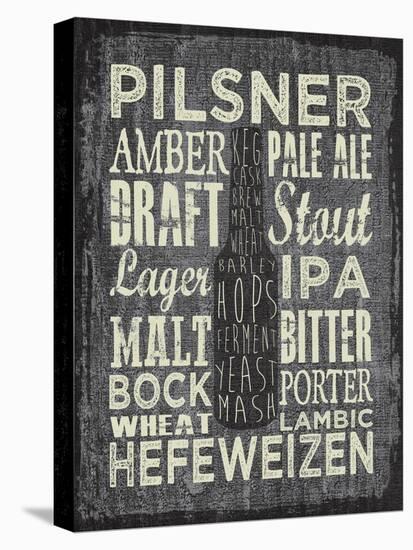 PILSNER
AMBER
PALE ALE
DRAFT
Stout
Lager
IPA
MALT
BITTER
BOCK
PORTER
WHEAT
LAMBIC
HEFEWEIZEN
KEG
CASK
BREW
MALT
WHEAT
BARLEY
HOPS
FERMENT
YEAST
MASH